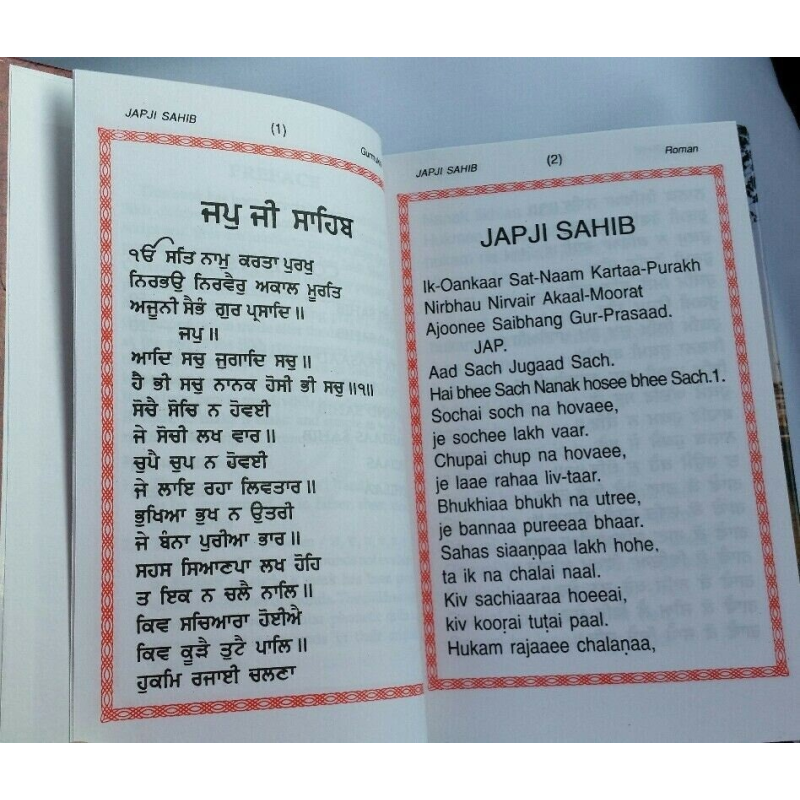 JAPJI SAHIB
(1)
ਜਪੁ ਜੀ ਸਾਹਿਬ
ੴ ਸਤਿ ਨਾਮੁ ਕਰਤਾ ਪੁਰਖੁ
ਨਿਰਭਉ ਨਿਰਵੈਰੁ ਅਕਾਲ ਮੂਰਤਿ
ਅਜੂਨੀ ਸੈਭੰ ਗੁਰ ਪ੍ਰਸਾਦਿ ॥
ਜਪੁ ॥
ਆਦਿ ਸਚੁ ਜੁਗਾਦਿ ਸਚੁ ॥
ਹੈ ਭੀ ਸਚੁ ਨਾਨਕ ਹੋਸੀ ਭੀ ਸਚੁ ॥੧॥
ਸੋਚੈ ਸੋਚਿ ਨ ਹੋਵਈ
ਜੇ ਸੋਚੀ ਲਖ ਵਾਰ ॥
ਚੁਪੈ ਚੁਪ ਨ ਹੋਵਈ
ਜੇ ਲਾਇ ਰਹਾ ਲਿਵਤਾਰ ॥
ਭੁਖਿਆ ਭੁਖ ਨ ਉਤਰੀ
ਜੇ ਬੰਨਾ ਪੁਰੀਆ ਭਾਰ ॥
ਸਹਸ ਸਿਆਣਪਾ ਲਖ ਹੋਹਿ
ਤ ਇਕ ਨ ਚਲੈ ਨਾਲਿ ॥
ਕਿਵ ਸਚਿਆਰਾ ਹੋਈਐ
ਕਿਵ ਕੂੜੈ ਤੁਟੈ ਪਾਲਿ ॥
ਹੁਕਮਿ ਰਜਾਈ ਚਲਣਾ
JAPJI SAHIB
(2)
Roman
JAPJI SAHIB
Ik-Oankaar Sat-Naam Kartaa-Purakh
Nirbhau Nirvair Akaal-Moorat
Ajoonee Saibhang Gur-Prasaad.
JAP.
Aad Sach Jugaad Sach.
Hai bhee Sach Nanak hosee bhee Sach.1.
Sochai soch na hovaee,
je sochee lakh vaar.
Chupai chup na hovaee,
je laae rahaa liv-taar.
Bhukhiaa bhukh na utree,
je bannaa pureeaa bhaar.
Sahas siaaṇpaa lakh hohe,
ta ik na chalai naal.
Kiv sachiaaraa hoeeai,
kiv kooṛai tuṭai paal.
Hukam rajaaee chalaṇaa,